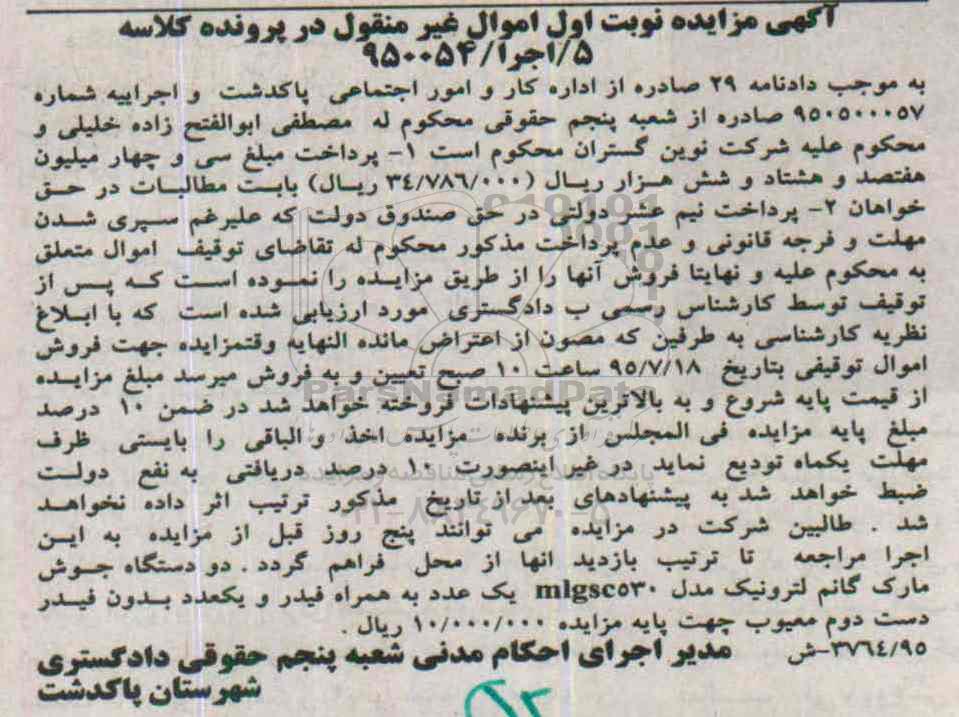 آگهی مزایده نوبت اول اموال غیر منقول در پرونده کلاسه
۵/اجرا/۹۵۰۰۵۴
به موجب دادنامه ۲۹ صادره از اداره کار و امور اجتماعی پاکدشت و اجراییه شماره
۹۵۰۵۰۰۰۵۷ صادره از شعبه پنجم حقوقی محکوم له مصطفی ابوالفتح زاده خلیلی و
محکوم علیه شرکت نوین گستران محکوم است ۱- پرداخت مبلغ سی و چهار میلیون
هفتصد و هشتاد و شش هزار ریال (۳۴/۷۸۶/۰۰۰ ریال) بابت مطالبات در حق
خواهان ۲- پرداخت نیم عشر دولتی در حق صندوق دولت که علیرغم سپری شدن
مهلت و فرجه قانونی و عدم پرداخت مذکور محکوم له تقاضای توقیف اموال متعلق
به محکوم علیه و نهایتا فروش آنها را از طریق مزایده را نموده است که پس از
توقیف توسط کارشناس رسمی ب دادگستری مورد ارزیابی شده است که با ابلاغ
نظریه کارشناسی به طرفین که مصون از اعتراض مانده النهایه وقتمزایده جهت فروش
اموال توقیفی بتاریخ ۹۵/۷/۱۸ ساعت ۱۰ صبح تعیین و به فروش میرسد مبلغ مزایده
از قیمت پایه شروع و به بالاترین پیشنهادات فروخته خواهد شد در ضمن ۱۰ درصد
مبلغ پایه مزایده فی المجلس از برنده مزایده اخذ و الباقی را بایستی ظرف
مهلت یکماه تودیع نماید در غیر اینصورت ۱۰ درصد دریافتی به نفع دولت
ضبط خواهد شد به پیشنهادهای بعد از تاریخ مذکور ترتیب اثر داده نخواهد
شد . طالبین شرکت در مزایده می توانند پنج روز قبل از مزایده به این
اجرا مراجعه تا ترتیب بازدید انها از محل فراهم گردد . دو دستگاه جوش
مارک گانم لترونیک مدل mlgsc۵۳۰ یک عدد به همراه فیدر و یکعدد بدون فیدر
دست دوم معیوب جهت پایه مزایده ۱۰/۰۰۰/۰۰۰ ریال .
۳۷۶۴/۹۵-ش مدیر اجرای احکام مدنی شعبه پنجم حقوقی دادگستری
شهرستان پاکدشت
ParsNamadData